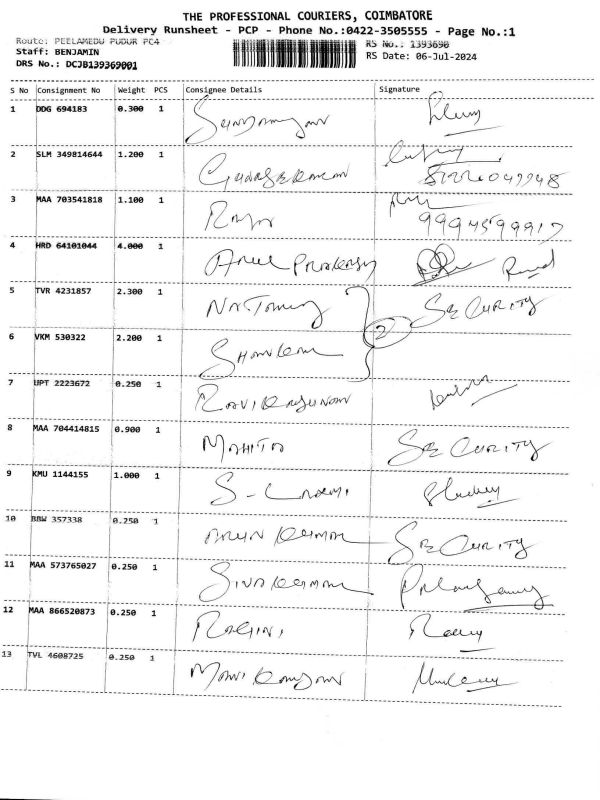 THE PROFESSIONAL COURIERS, COIMBATORE
Delivery Runsheet - PCP - Phone No.:0422-3505555 - Page No.:1
Route: PEELAMEDU PUDUR PC4 RS No.: 1393690
Staff: BENJAMIN RS Date: 06-Jul-2024
DRS No.: DCJB139369001
S No Consignment No Weight PCS Consignee Details Signature
1 DDG 694183 0.300 1
2 SLM 349814644 1.200 1 GUNASEKARAN
3 MAA 703541818 1.100 1 RAJA 9994599917
4 HRD 64101044 4.000 1 ARUL PRAKASH
5 TVR 4231857 2.300 1 SECURITY
2
6 VKM 530322 2.200 1
7 UPT 2223672 0.250 1
8 MAA 704414815 0.900 1 MOHITA SECURITY
9 KMU 1144155 1.000 1 S-LAXMI
10 BBW 357338 0.250 1 ARUN KUMAR SECURITY
11 MAA 573765027 0.250 1 SIVAKUMAR
12 MAA 866520873 0.250 1 RAGINI
13 TVL 4608725 0.250 1 MANIKANDAN